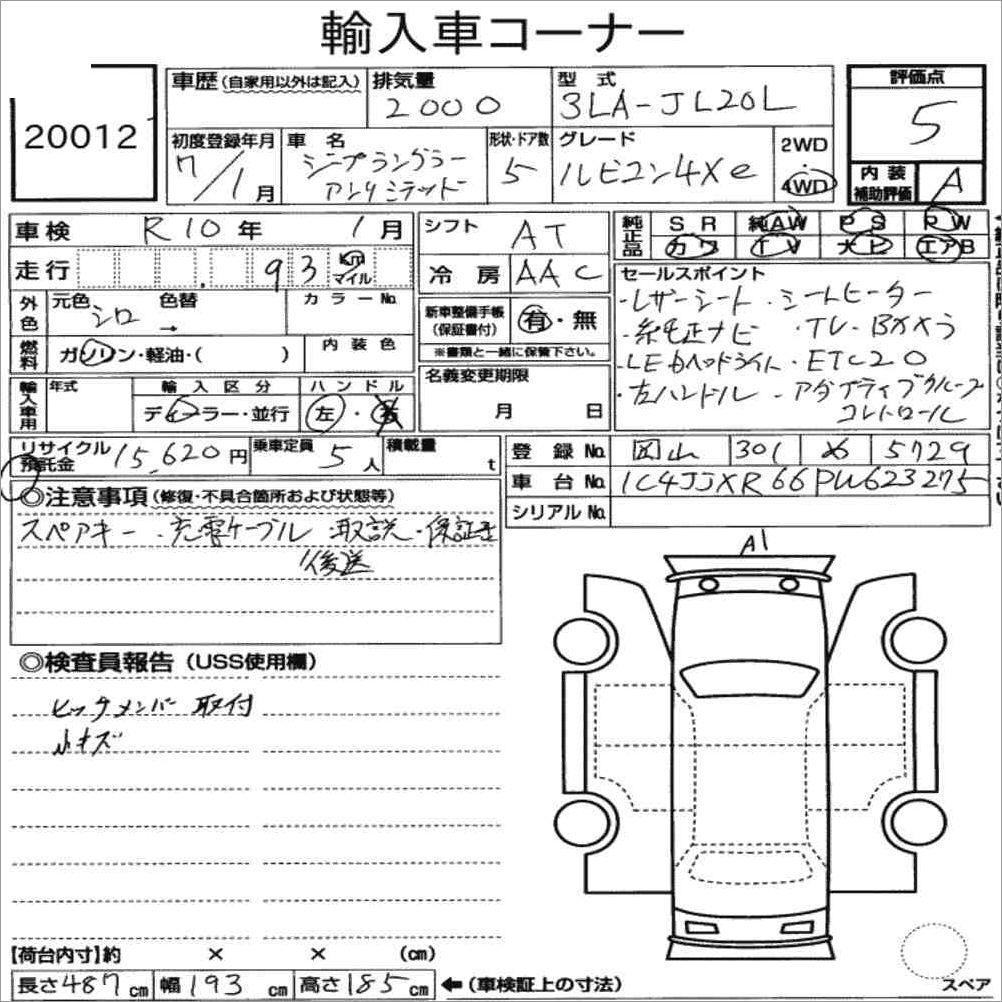 輸入車コーナー
20012
車歴 (自家用以外は記入)
排気量
2000
型式
3LA-JL20L
評価点
5
初度登録年月
7/1月
車名
ジープラングラー
アンリミテッド
形状・ドア数
5
グレード
ルビコン4Xe
2WD
・
4WD
内装
補助評価
A
車検 R10年 1月
走行 93 km マイル
シフト AT
冷房 AAC
純正品
SR 純AW PS PW
カワ TV ナビ エアB
外色
元色 シロ
色替 →
カラーNo.
新車整備手帳
(保証書付)
有・無
※書類と一緒に保管下さい。
燃料
ガソリン・軽油・( )
内装色
セールスポイント
・レザーシート ・シートヒーター
・純正ナビ ・TV・Bカメラ
・LEDヘッドライト・ETC2.0
・左ハンドル ・アダプティブクルーズ
コントロール
輸入車用
年式
輸入区分
ディーラー・並行
ハンドル
左・右
名義変更期限
月 日
リサイクル
預託金
15,620円
乗車定員
5人
積載量
t
登録No. 岡山 301 め 5729
車台No. 1C4JJXR66PW623275
シリアルNo.
◎注意事項 (修復・不具合箇所および状態等)
スペアキー・充電ケーブル・取説・保証書
後送
A1
◎検査員報告 (USS使用欄)
ヒッチメンバー取付
小キズ
【荷台内寸】約 × × (cm)
長さ487cm 幅193cm 高さ185cm ←(車検証上の寸法)
スペア